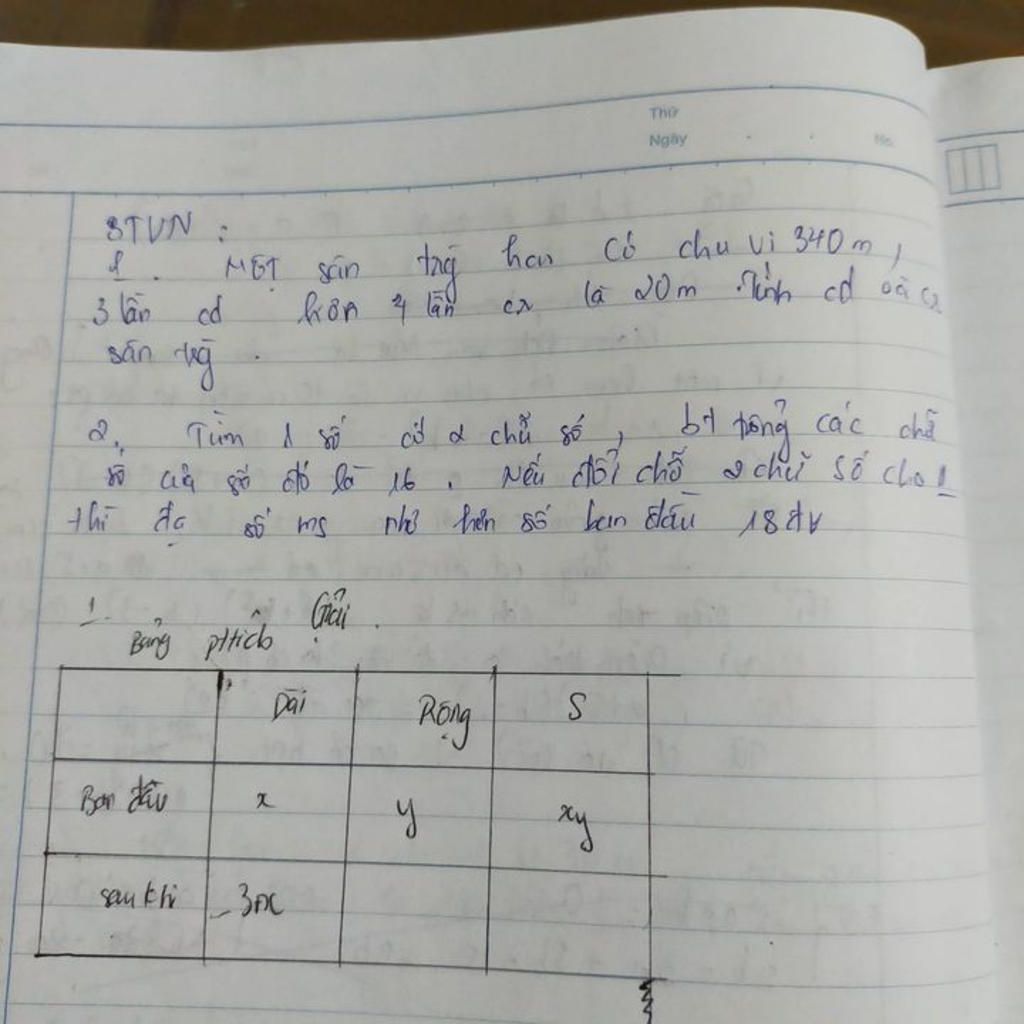 Thứ
Ngày No.
BTVN :
1. MỘT sân trg hcn có chu vi 340 m,
3 lần cd hơn 4 lần cr là 20 m. Tính cd và cr
sân trg .
2. Tìm 1 số có 2 chữ số, bt tổng các chữ
số của số đó là 16. Nếu đổi chỗ 2 chữ số cho
thì đc số ms nhỏ hơn số ban đầu 18 đv
1. Giải .
Bảng ptích
Dài Rộng S
Ban đầu x y xy
sau khi 3x